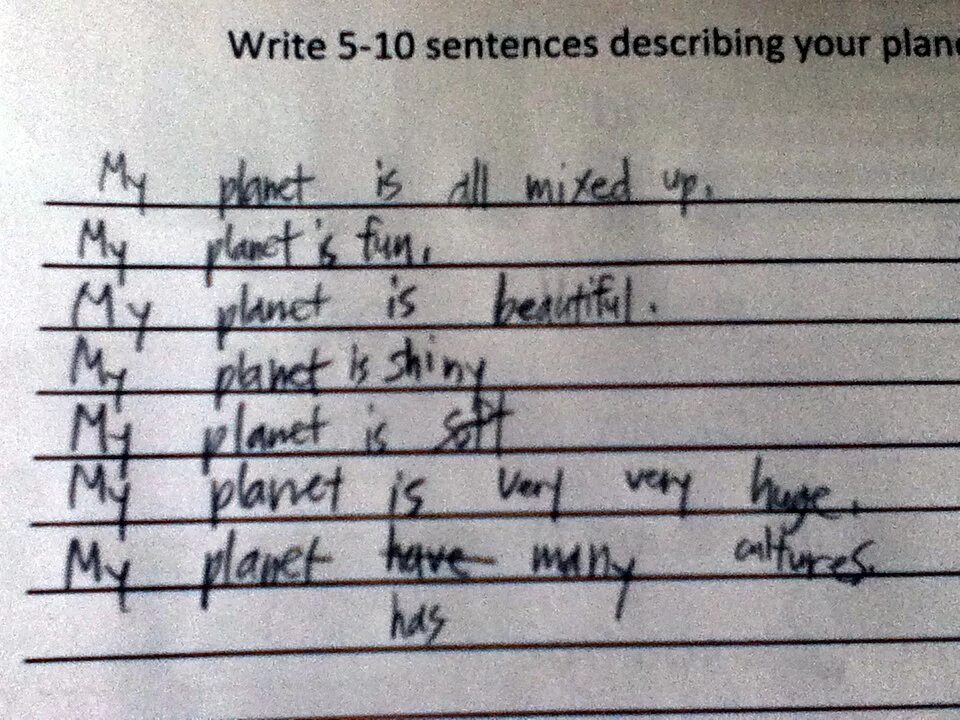 Write 5-10 sentences describing your plane
My planet is all mixed up.
My planet's fun.
My planet is beautiful.
My planet is shiny
My planet is soft
My planet is very very huge.
My planet have many cultures.
has